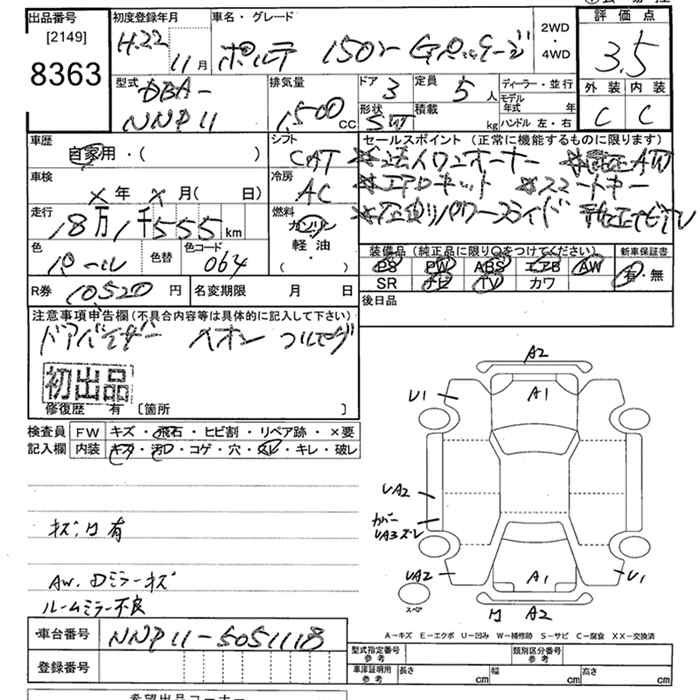 出品番号 初度登録年月 車名・グレード 2WD・4WD 評価点
[2149]
8363
H.22 11月 ポルテ 150r 3.5
型式 DBA-NNP11 排気量 1,500CC ドア 3 定員 5人 ディーラー・並行 外装 内装
形状 積載 kg モデル年式 年 ハンドル 左・右 C C
車歴 自家用・( ) シフト CAT セールスポイント (正常に機能するものに限ります)
※法人ワンオーナー ※純正AW
車検 ×年 ×月( 日) 冷房 AC ※エアロキット ※スマートキー
走行 18万1千555km 燃料 ガソリン 軽油 ( ) パワースライド 純正ナビTV
色 パール 色替 色コード 064 装備品 (純正品に限り○をつけてください) 新車保証書
PS PW ABS エアB AW 有・無
R券 10,520円 名変期限 月 日 SR ナビ TV カワ
後日品
注意事項申告欄(不具合内容等は具体的に記入して下さい)
ドアバイザー
初出品
修復歴 有 [箇所 ]
検査員 FW キズ・飛石・ヒビ割・リペア跡・×要
記入欄 内装 キズ・汚レ・コゲ・穴・スレ・キレ・破レ
A2
U1 A1
UA2
カバー
UA3ズレ
UA2 A1 U1
スペア A2
キズ,凹有
AW.Dミラーキズ
ルームミラー不良
A-キズ E-エクボ U-凹み W-補修跡 S-サビ C-腐食 XX-交換済
車台番号 NNP11-5051118
型式指定番号 参考 類別区分番号 参考
登録番号 車庫証明用 参考 長さ cm 幅 cm 高さ cm
希望出品コーナー